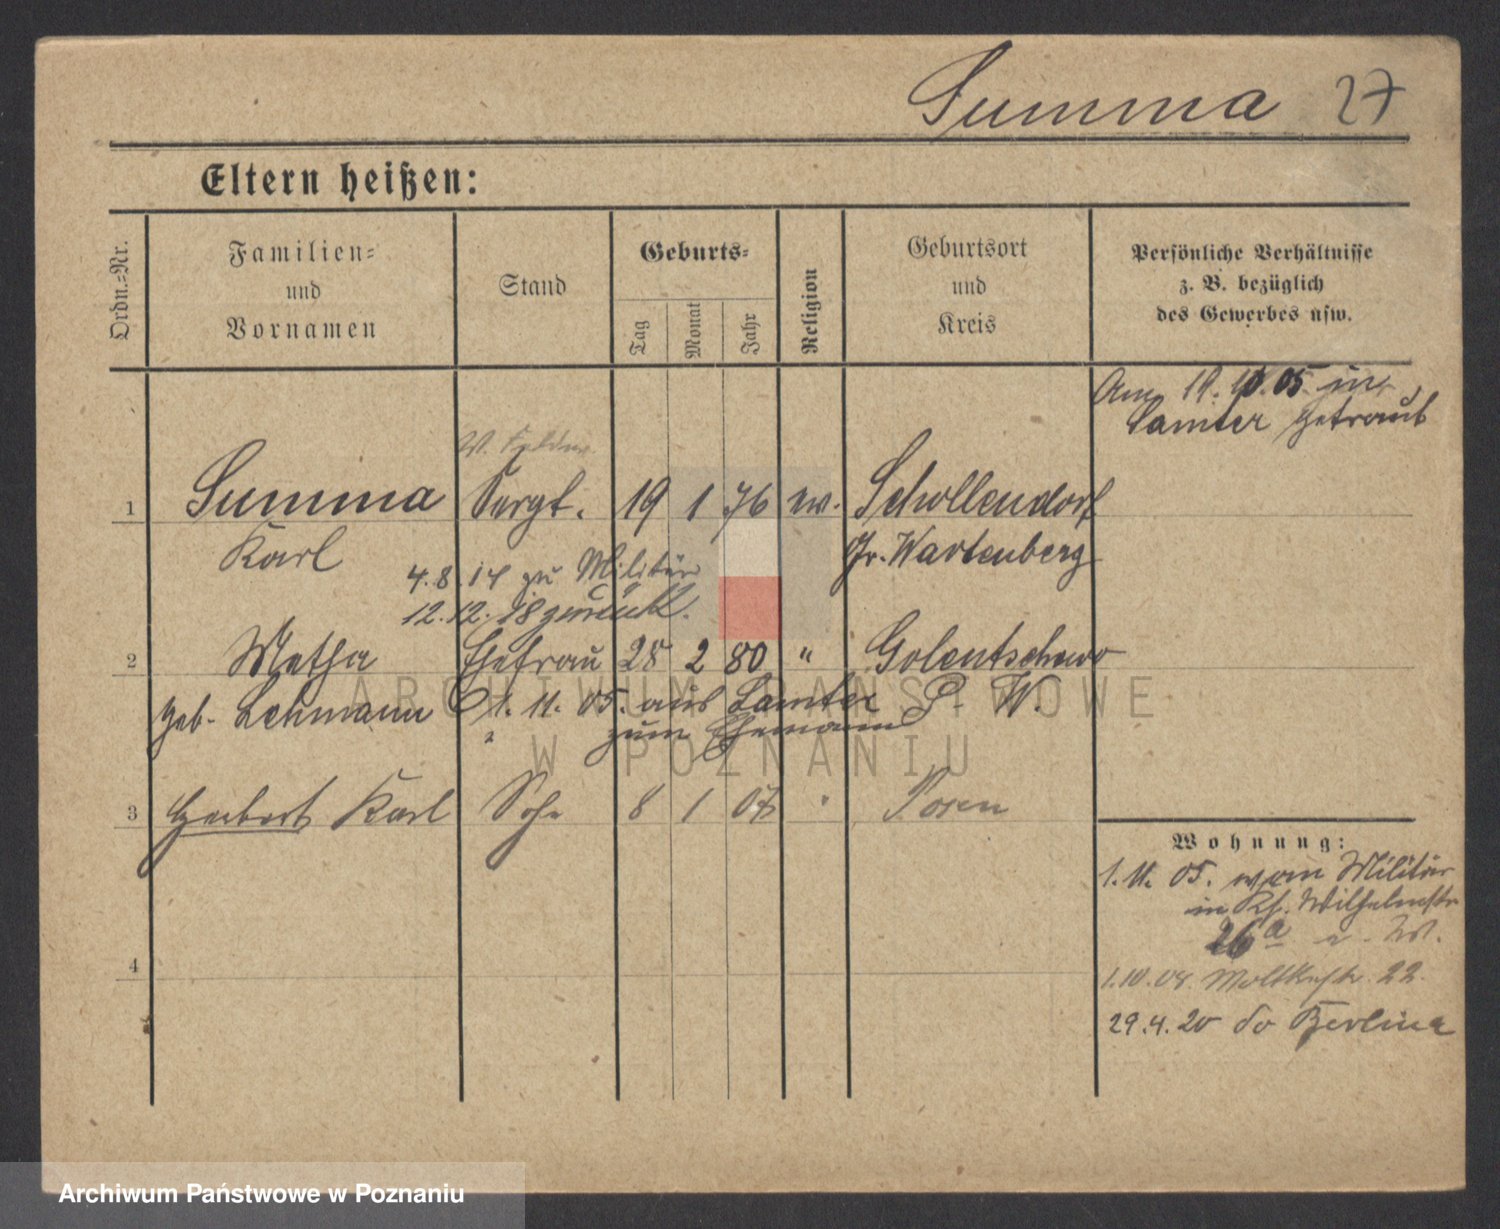 Summa 27
Eltern heißen:
Ordn.-Nr.
Familien-
und
Vornamen
Stand
Geburts-
Tag
Monat
Jahr
Religion
Geburtsort
und
Kreis
Persönliche Verhältnisse
z. B. bezüglich
des Gewerbes usw.
Am 19. 10. 05. in
Samter getraut
1 Summa Sergt. 19 1 76 ev. Schollendorf
Karl Gr. Wartenberg
4. 8. 14 zu Militär
12. 12. 18 zurück.
2 Metha Ehefrau 28 2 80 " Golentschewo
geb. Lehmann 1. 11. 05. aus Samter P. W.
zum Ehemann
3 Herbert Karl Sohn 8 1 07 " Posen
4
Wohnung:
1. 11. 05. vom Militär
in Ks. Wilhelmstr
26a
1. 10. 08. Moltkestr. 22.
29. 4. 20 do Berlin
ARCHIWUM PAŃSTWOWE
W POZNANIU
Archiwum Państwowe w Poznaniu